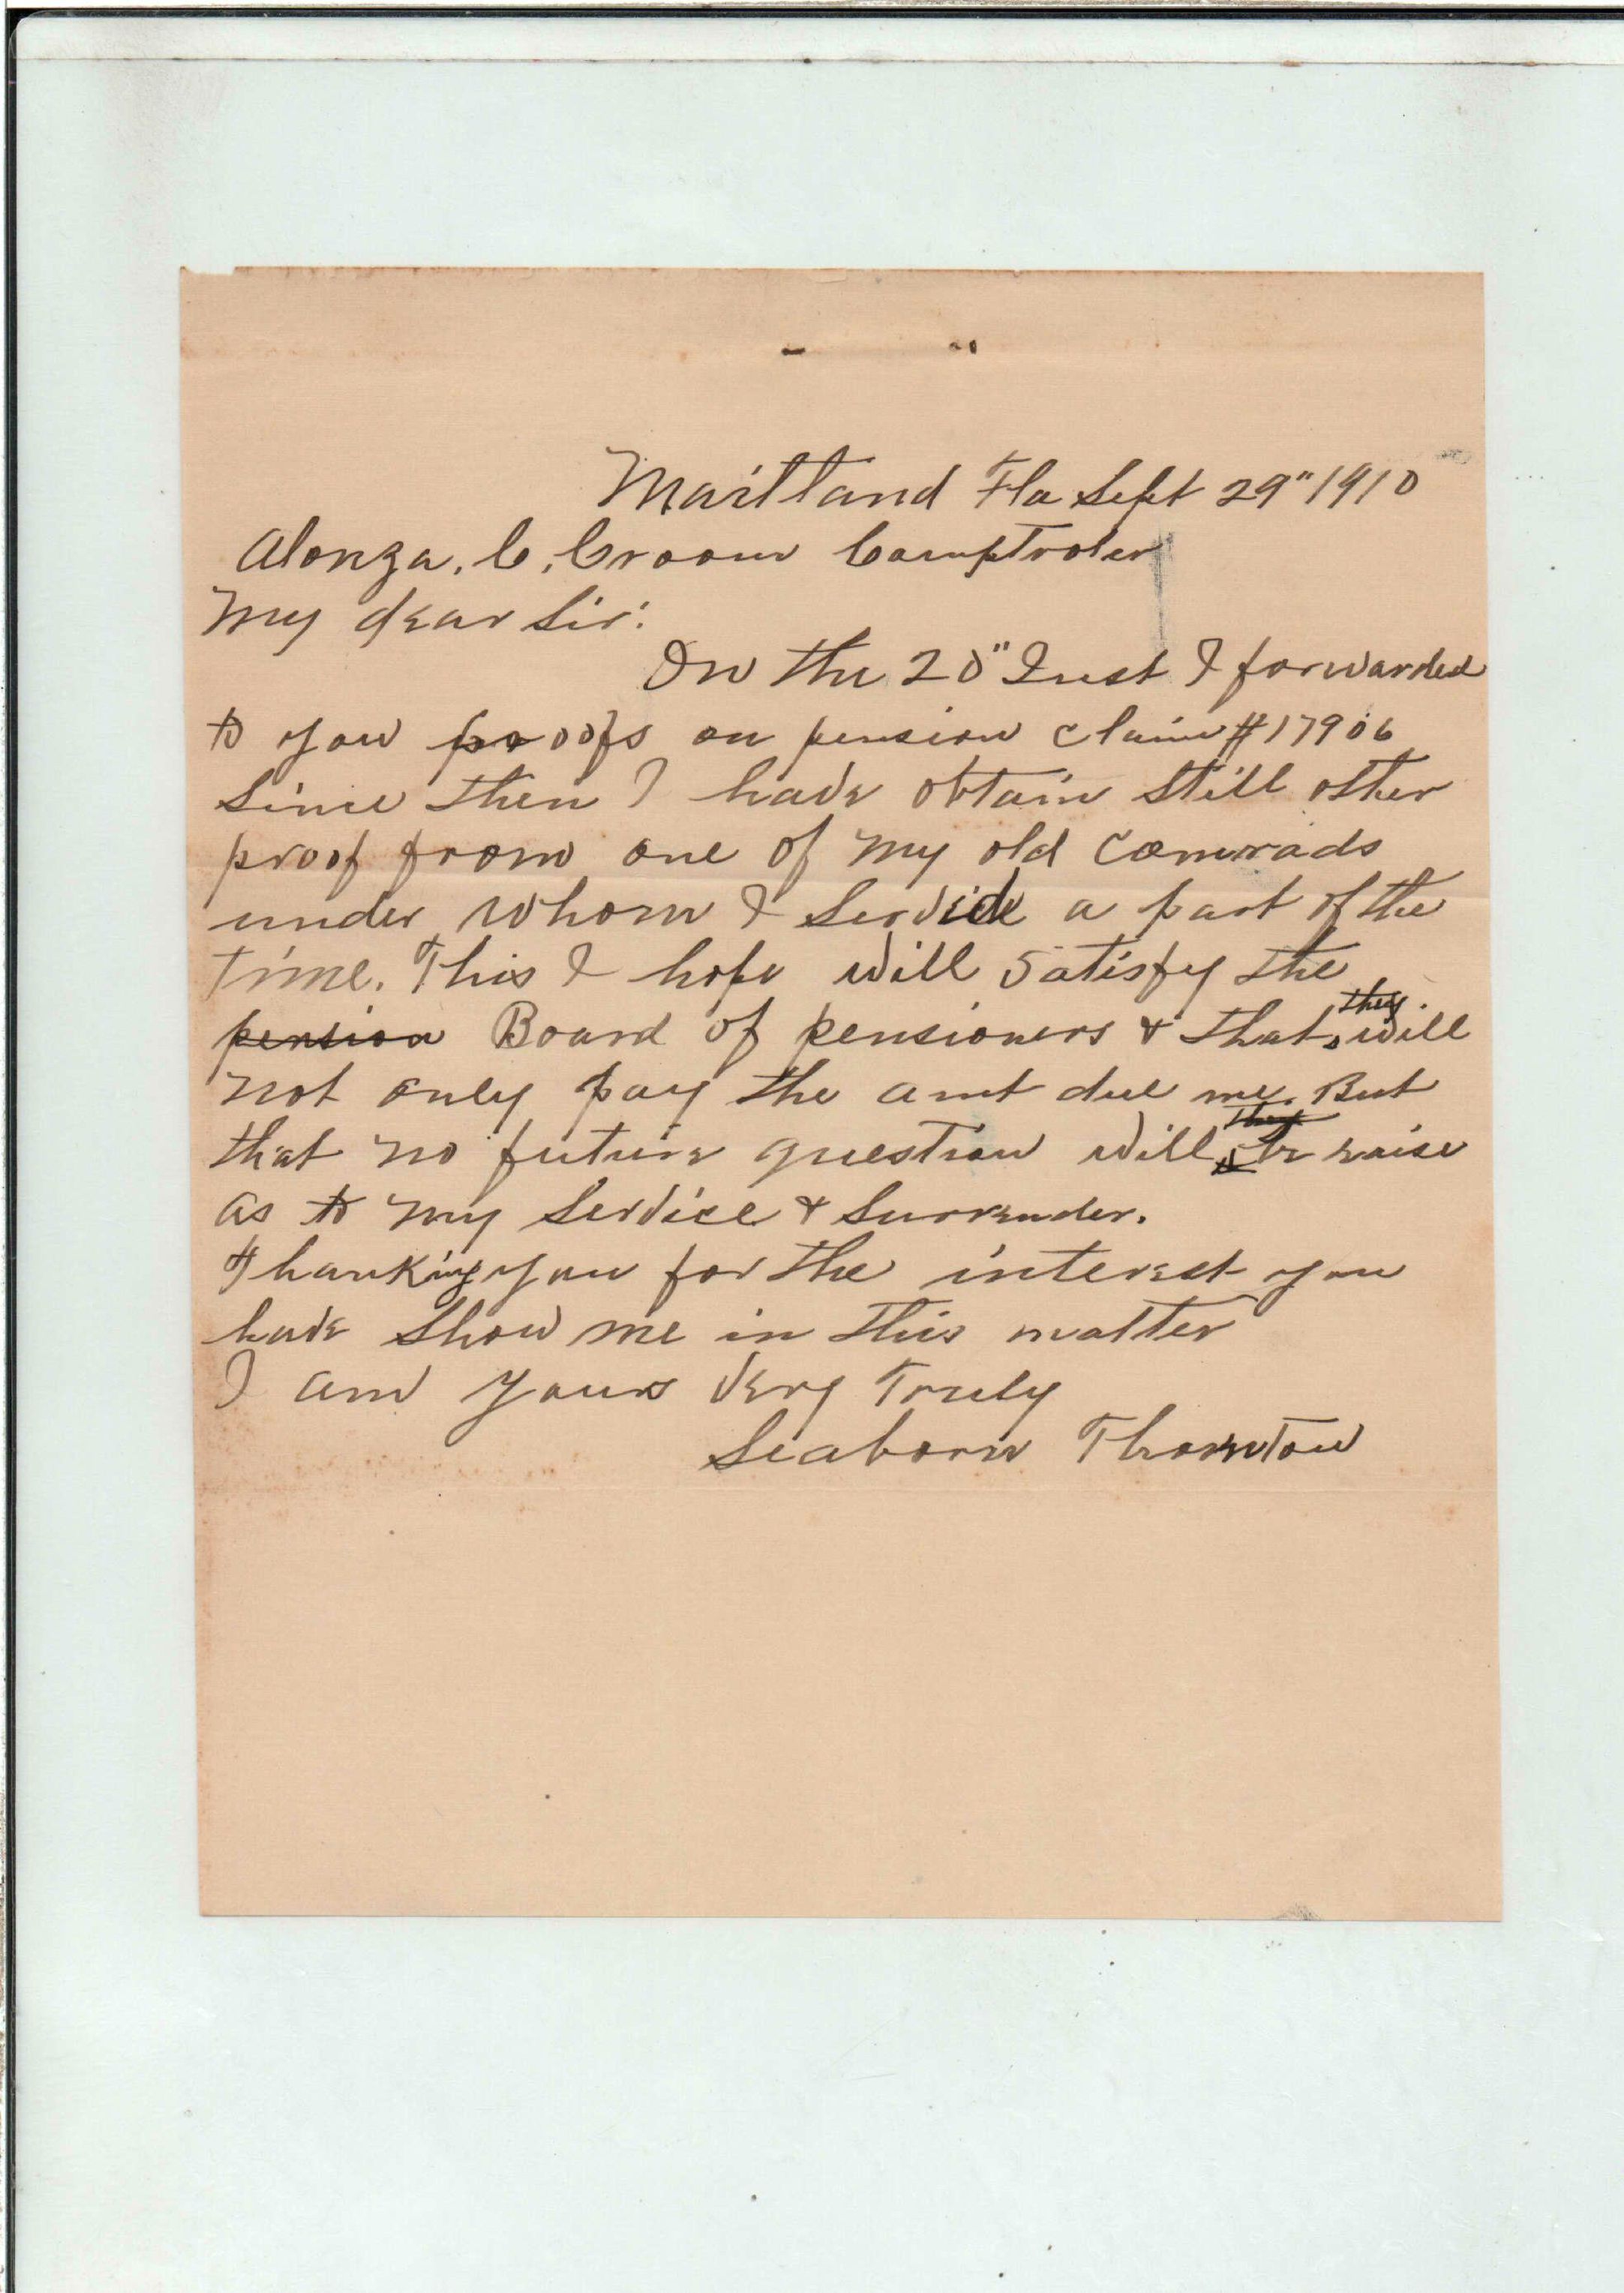 Maitland Fla Sept 29" 1910
Alonza. C. Croom Comptroler
My dear Sir:
On the 20" Inst I forwarded
to you proofs on pension claim #17906
Since then I have obtain still other
proof from one of my old Comrads
under whom I Servide a part of the
time. This I hope will satisfy the
pension Board of pensioners & that they will
not only pay the amt due me. But
that no future question will they be raise
as to my Service & Surrender.
Thanking you for the interest you
have show me in this matter
I am yours very Truly
Seaborn Thornton